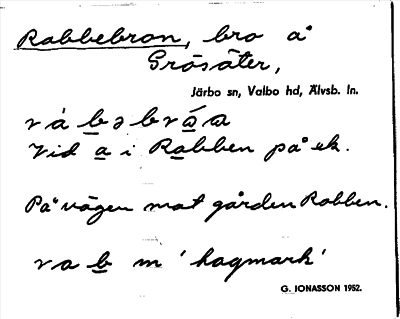 Rabbebron, bro å
Grösäter,
Järbo sn, Valbo hd, Älvsb. ln.
Vid a i Rabben på ek.
På vägen mot gården Rabben.
r a b m 'hagmark'
G. JONASSON 1952.